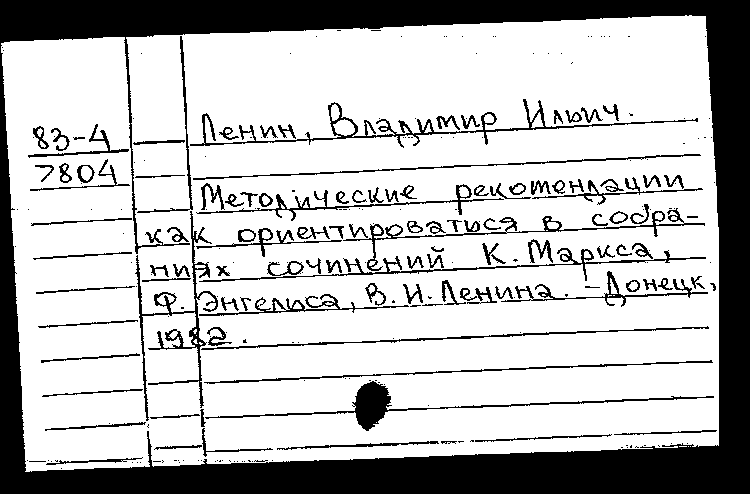 83-4
7804
Ленин, Владимир Ильич.
Методические рекомендации
как ориентироваться в собра-
ниях сочинений К. Маркса,
Ф. Энгельса, В. И. Ленина. - Донецк,
1982.